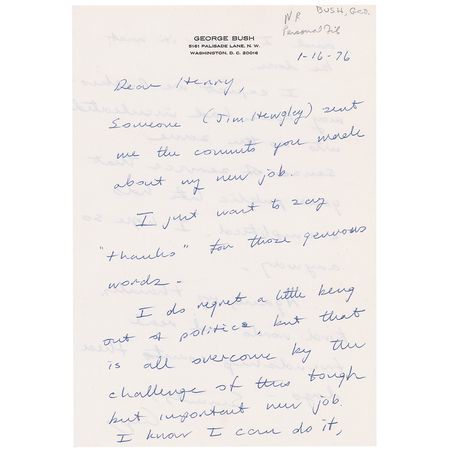 NR
BUSH, GEO.
Personal File
GEORGE BUSH
5161 PALISADE LANE, N. W.
WASHINGTON, D. C. 20016
1-16-76
Dear Henry,
Someone (Jim Hengley) sent
me the comments you made
about my new job.
I just want to say
"thanks" for those generous
words -
I do regret a little being
out of politics, but that
is all overcome by the
challenge of this tough
but important new job.
I know I can do it,